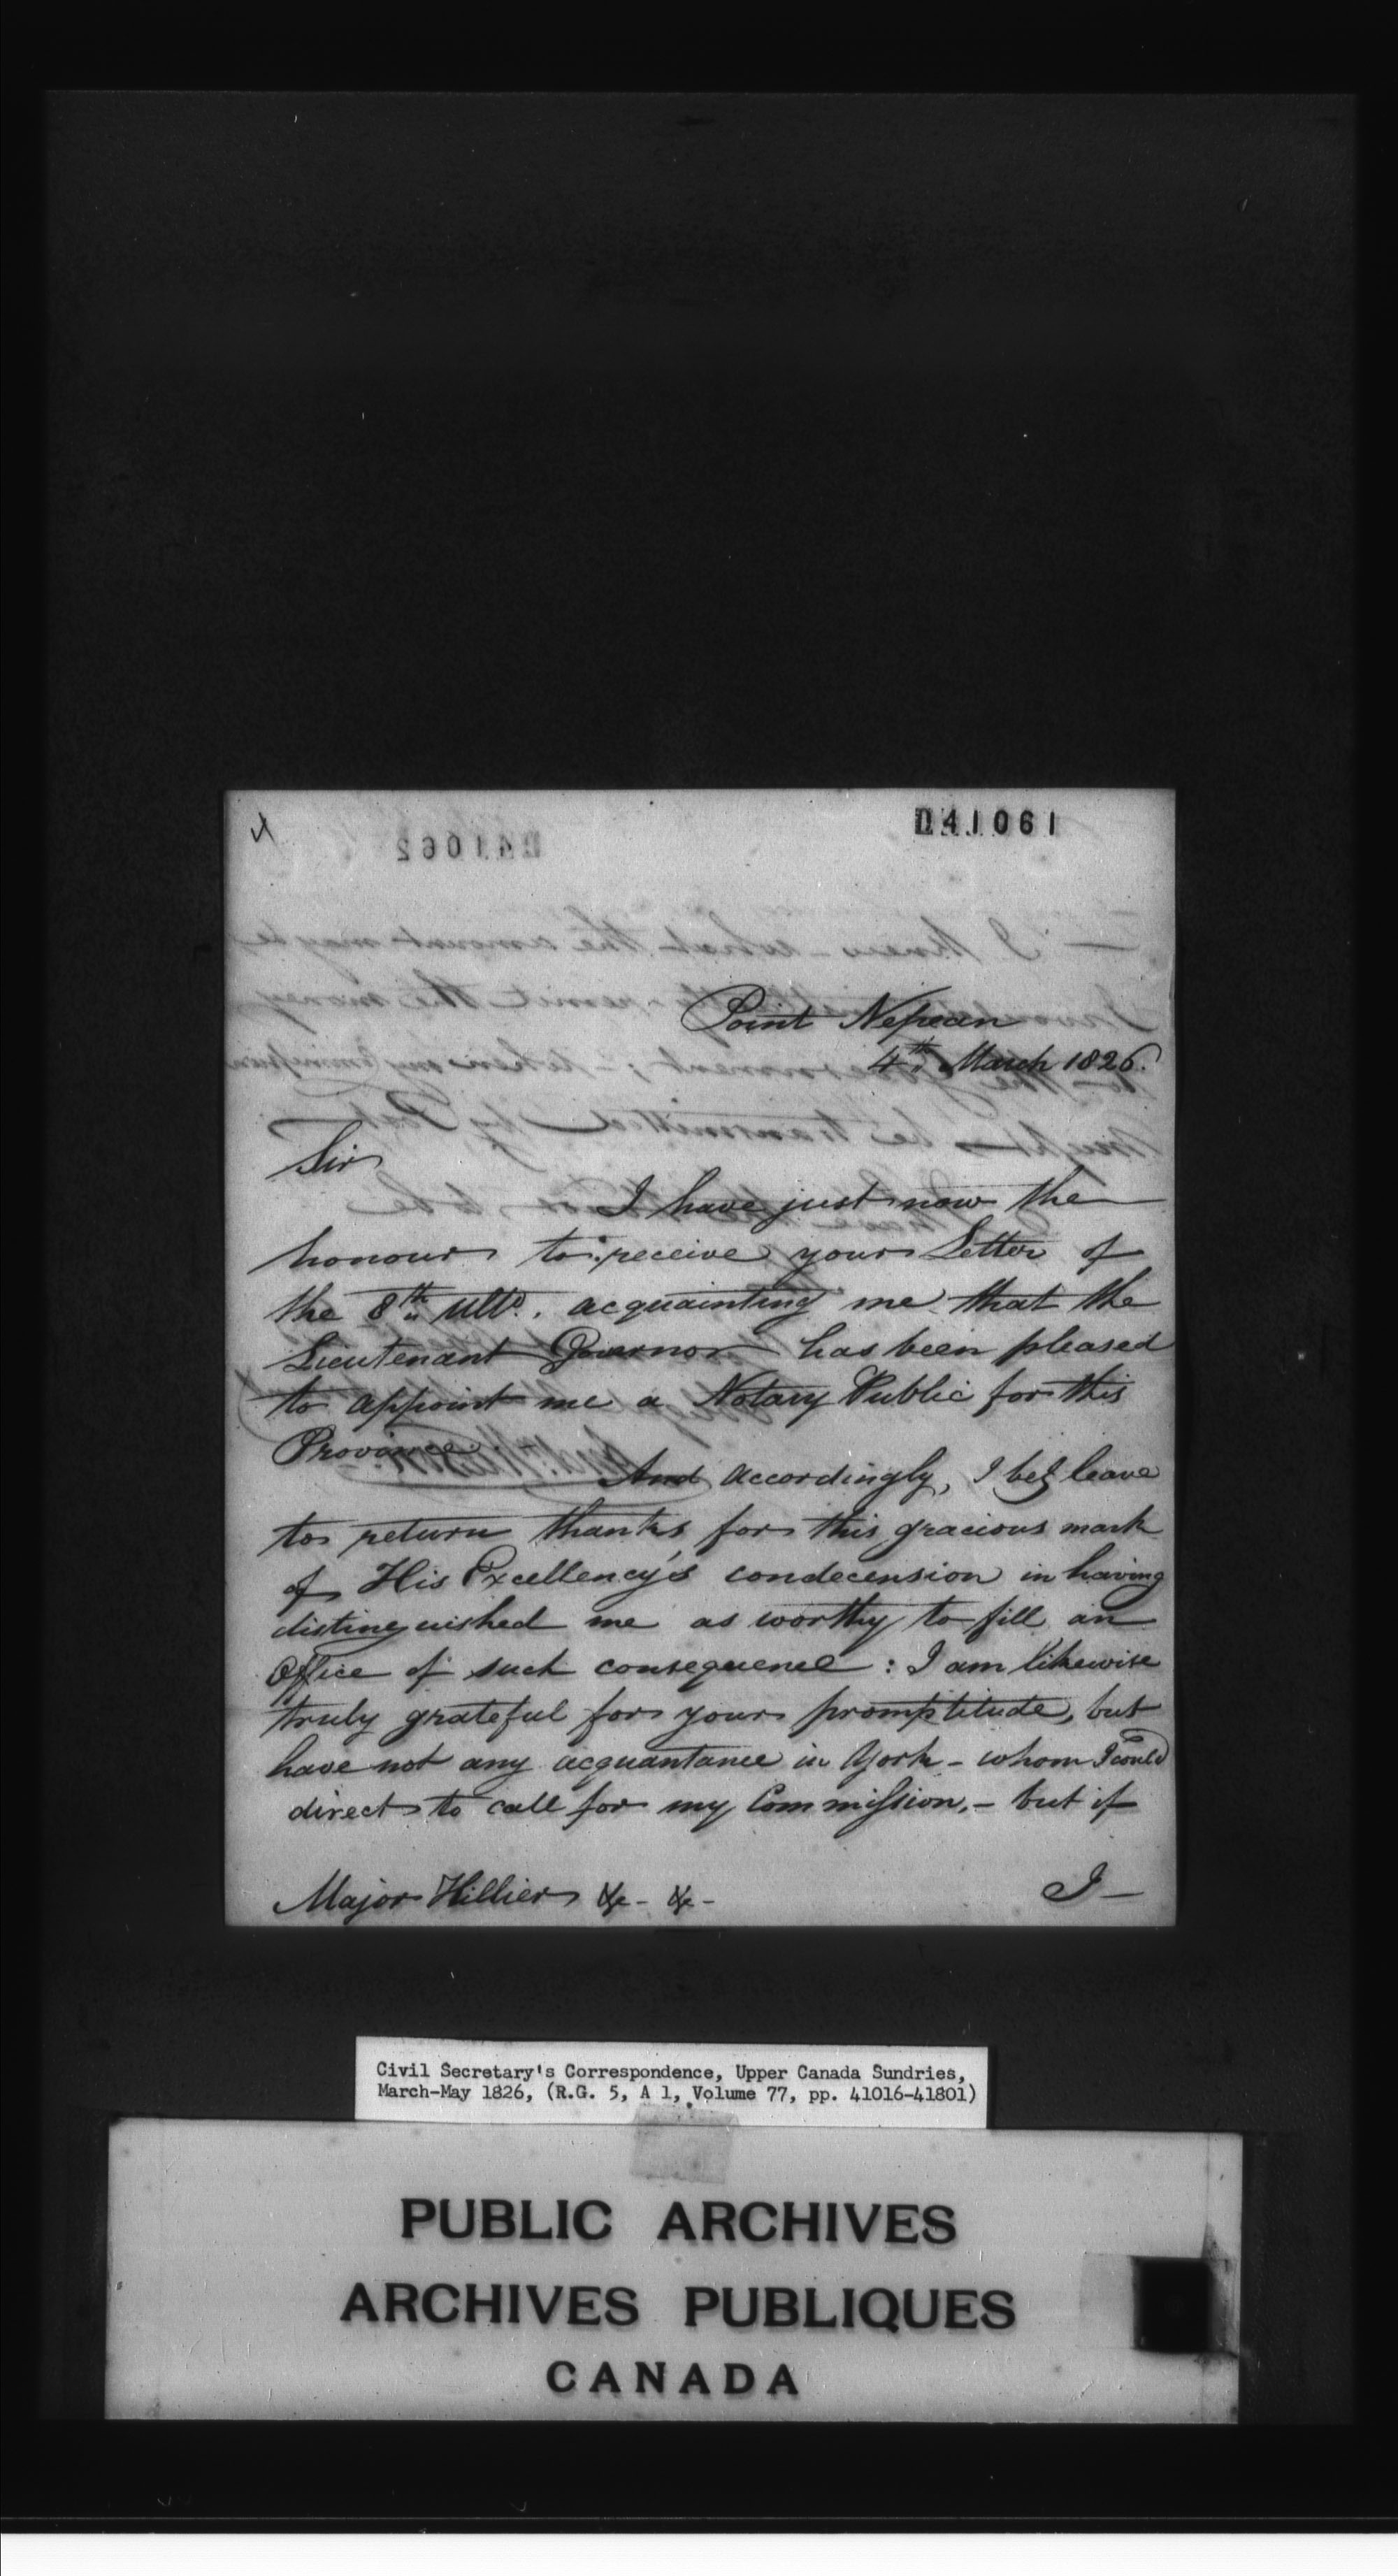 041061
Point Nepean
4th March 1826.
Sir
I have just now the
honour to receive your Letter of
the 8th Ulto. acquainting me that the
Lieutenant Governor has been pleased
to appoint me a Notary Public for this
Province.
And accordingly, I beg leave
to return thanks for this gracious mark
of His Excellency's condecension in having
distinguished me as worthy to fill an
Office of such consequence : I am likewise
truly grateful for your promptitude, but
have not any acquantance in York - whom I could
direct to call for my Commission, - but if
I -
Major Hillier &c - &c -
Civil Secretary's Correspondence, Upper Canada Sundries,
March-May 1826, (R.G. 5, A 1, Volume 77, pp. 41016-41801)
PUBLIC ARCHIVES
ARCHIVES PUBLIQUES
CANADA